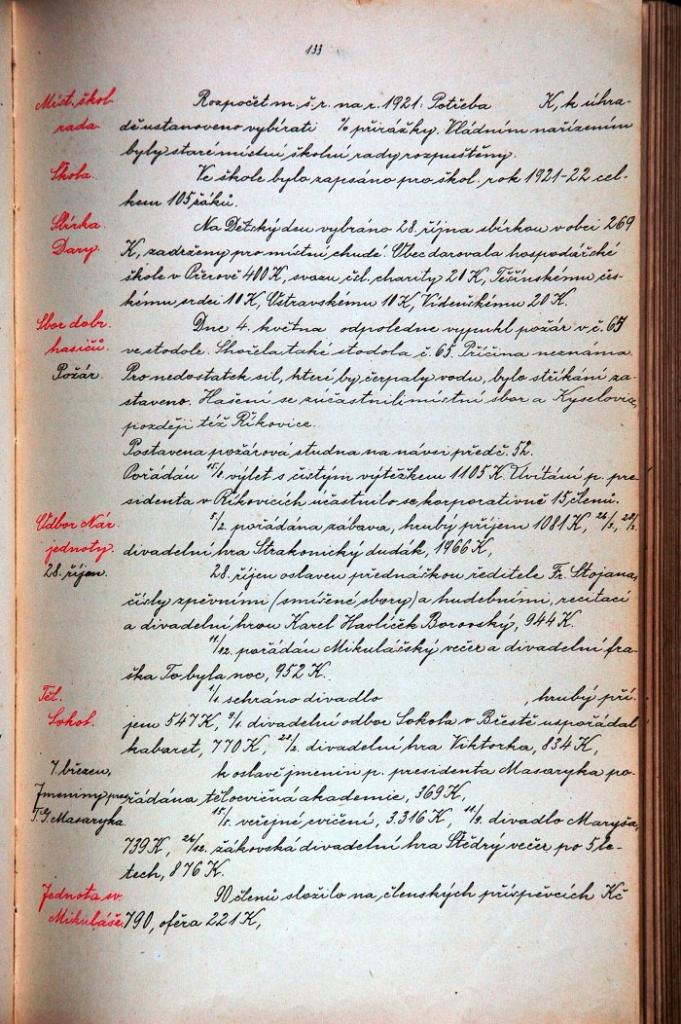 133
Míst. škol. Rozpočet m. š. r. na r. 1921: Potřeba K, k úhra-
rada. dě ustanoveno vybírati % přirážky. Vládním nařízením
byly staré místní školní rady rozpuštěny.
Škola. Ve škole bylo zapsáno pro škol. rok 1921-22 cel-
kem 105 žáků.
Sbírka. Na Dětský den vybráno 28. října sbírkou v obci 269
Dary. K, zadrženy pro místní chudé. Obec darovala hospodářské
škole v Přerově 400 K, svazu čsl. charity 20 K, Těšínskému čes-
kému srdci 10 K, Ostravskému 10 K, Vídeňskému 20 K.
Sbor dobr. Dne 4. května odpoledne vypukl požár v č. 65
hasičů. ve stodole. Shořela také stodola č. 63. Příčina neznáma.
Požár. Pro nedostatek sil, které by čerpaly vodu, bylo stříkání za-
staveno. Hašení se zúčastnili místní sbor a Kyselovice,
později též Říkovice.
Postavena požárová studna na návsi před č. 52.
Pořádán 15/8 výlet s čistým výtěžkem 1105 K. Uvítání p. pre-
sidenta v Říkovicích účastnilo se korporativně 15 členů.
Odbor Nár. 5/2. pořádána zábava, hrubý příjem 1081 K, 26/3., 28/3.
jednoty. divadelní hra Strakonický dudák, 1966 K,
28. říjen. 28. říjen oslaven přednáškou ředitele Fr. Stojana,
čísly zpěvními (smíšené sbory) a hudebními, recitací
a divadelní hrou Karel Havlíček Borovský, 944 K.
11/12. pořádán Mikulášský večer a divadelní fra-
ška To byla noc, 952 K.
Těl. 1/1. sehráno divadlo , hrubý pří-
Sokol. jem 547 K, 9/1. divadelní odbor Sokola v Břestě uspořádal
kabaret, 770 K, 28/2. divadelní hra Viktorka, 834 K,
7. březen, k oslavě jmenin p. presidenta Masaryka po-
Jmeniny pres. řádána tělocvičná akademie, 369 K,
T. G. Masaryka 15/5. veřejné cvičení, 3.316 K, 11/9. divadlo Maryša,
739 K, 26/12. žákovská divadelní hra Štědrý večer po 5 le-
tech, 876 K.
Jednota sv. 90 členů složilo na členských příspěvcích Kč
Mikuláše. 790, oféra 221 K,